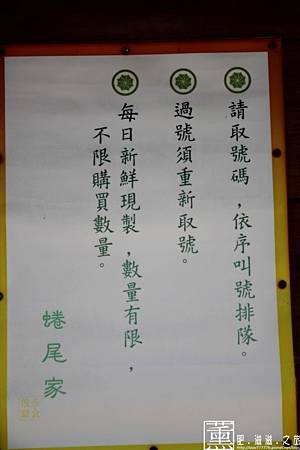 請取號碼，依序叫號排隊。
過號須重新取號。
每日新鮮現製，數量有限，
不限購買數量。
蜷尾家
薰
肥．滋滋．之旅